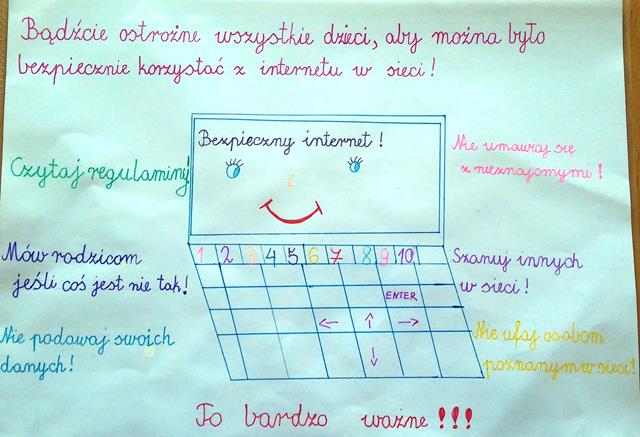 Bądźcie ostrożne wszystkie dzieci, aby można było
bezpiecznie korzystać z internetu w sieci!
Bezpieczny internet!
Czytaj regulaminy!
Nie umawiaj się
z nieznajomymi!
Mów rodzicom
jeśli coś jest nie tak!
1 2 3 4 5 6 7 8 9 10
ENTER
Szanuj innych
w sieci!
Nie podawaj swoich
danych!
Nie ufaj osobom
poznanym w sieci!
To bardzo ważne!!!